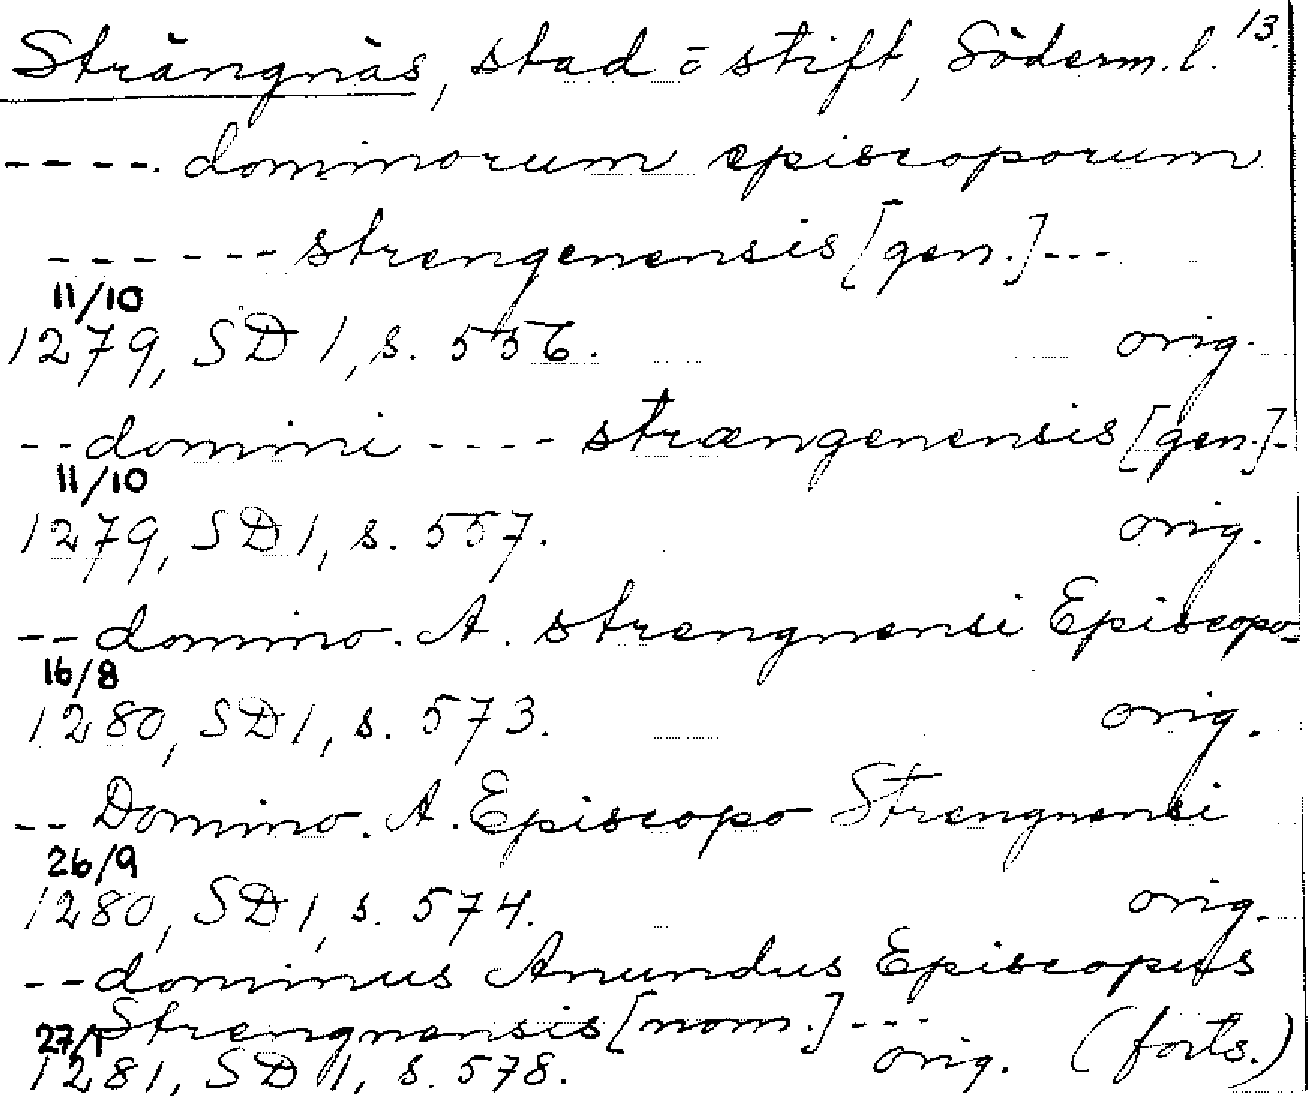 Strängnäs, stad o stift, Söderm. l. 13.
---- dominorum episcoporum
------ strengenensis [gen.] ---
11/10
1279, SD 1, s. 556. orig.
-- domini ---- strængenensis [gen.] -
11/10
1279, SD 1, s. 557. orig.
-- domino. A. strengnensi Episcopo -
16/8
1280, SD 1, s. 573. orig.
-- Domino. A. Episcopo Strengnensi
26/9
1280, SD 1, s. 574. orig.
-- dominus Anundus Episcopus
Strengnensis [nom.] ---
27/1
1281, SD 1, s. 578. orig. (forts.)